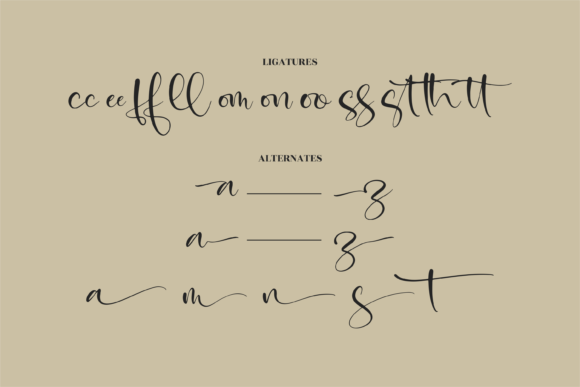 LIGATURES
cc ee ff ll om on oo ss st th tt
ALTERNATES
a z
a z
a m n s t